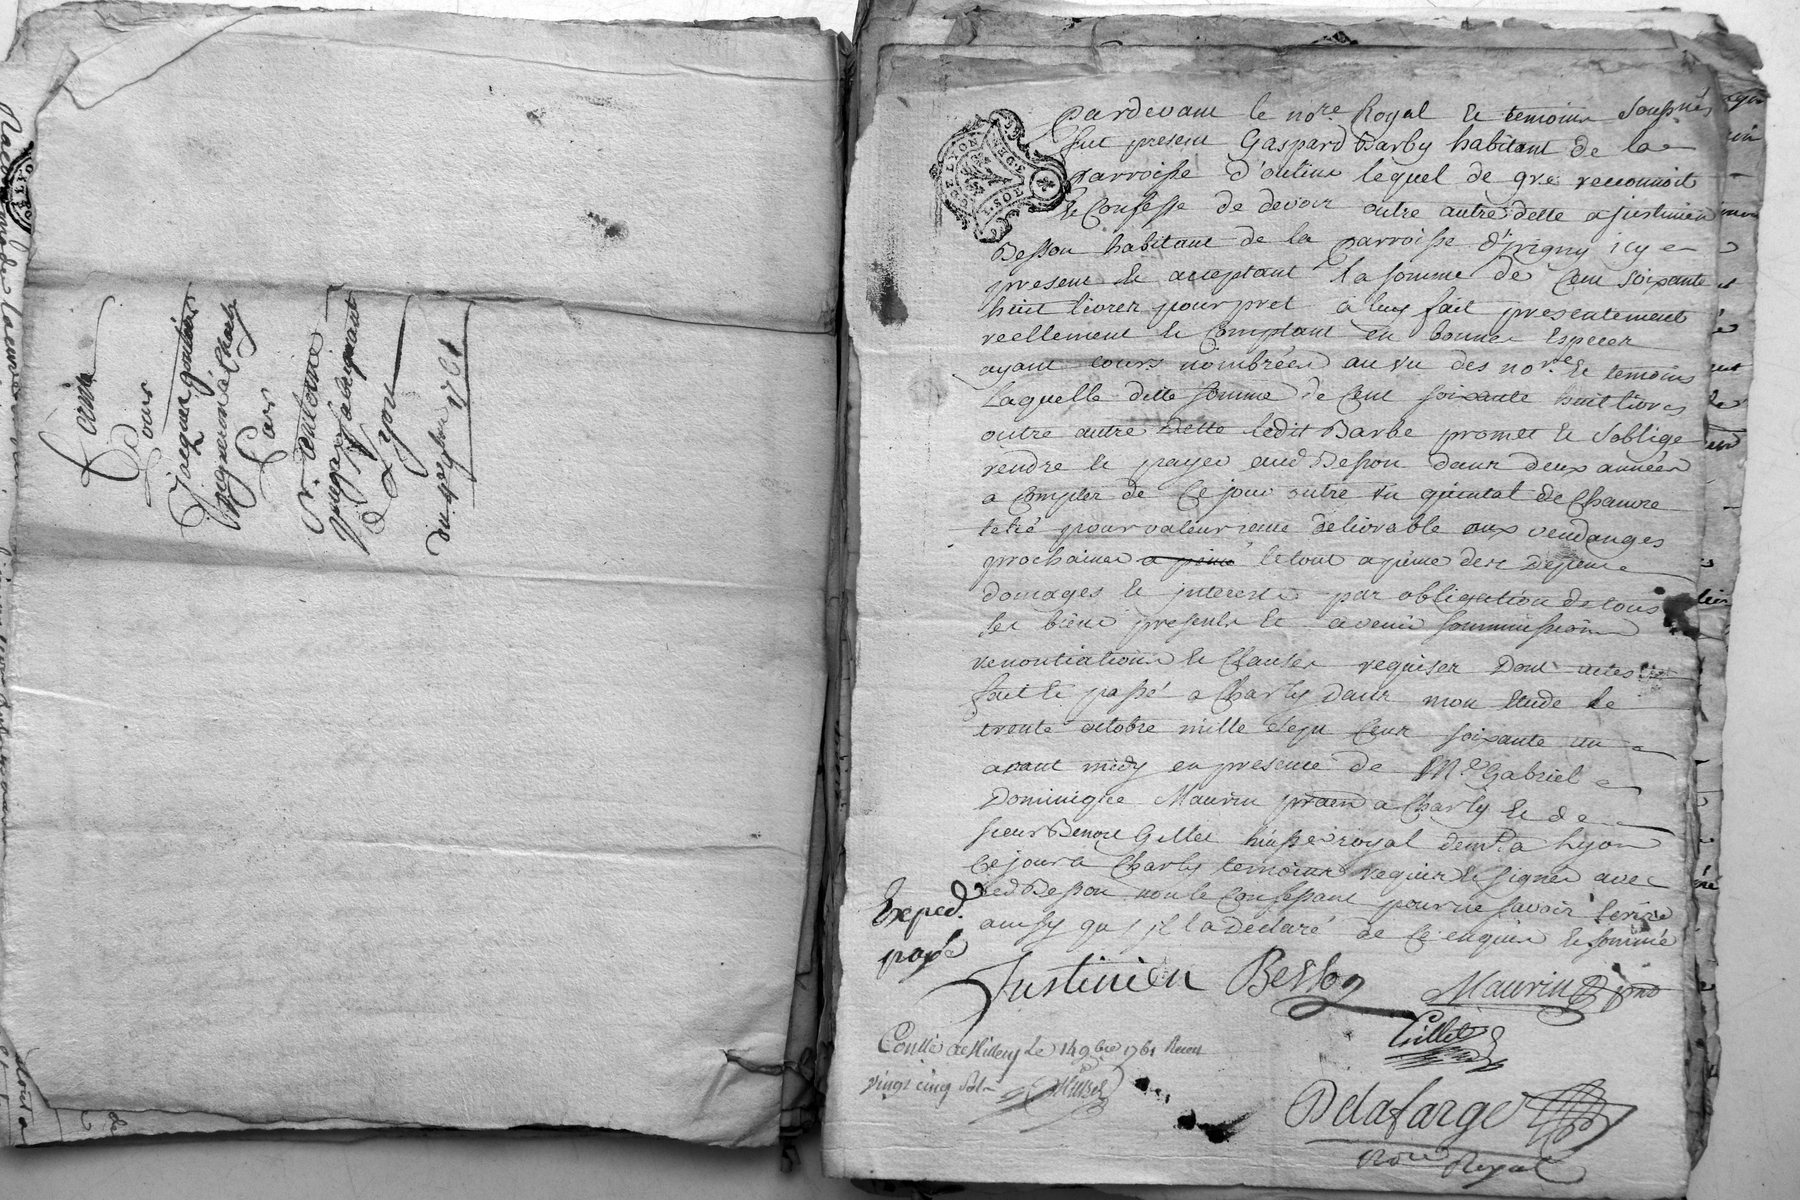 Ferme
Pour
Jacques
Par
Sr. Antoine
a Lyon
du
1761
Pardevant le nore. Royal & temoins Soussignés
fut present Gaspard Barby habitant de la
parroisse d'oulins lequel de gré reconnoit
& Confesse de devoir outre autre dette a justinien
Besson habitant de la parroisse d'jrigny icy
present & acceptant la somme de Cent soixante
huit livres pour pret à luy fait presentement
reellement & Comptant en bonnes Especes
ayant cours nombrées au vu des nore. & temoins
Laquelle ditte somme de Cent soixante huit livres
outre autre Dette ledit Barbe promet & soblige
rendre & payer aud Besson dans deux années
a Compter de Ce jour outre un quintal de Chanvre
pour valeur délivrable aux vendanges
prochaines a peine le tout a peine des Depens
domages & interests par obligation de tous
ses biens presents & avenir soummissions
renontiations & Clauses requises Dont actes
fait & passé a Charly dans mon Etude le
trente octobre mille Sept Cent soixante un
avant midy en presence de Me. Gabriel
Dominique Maurin praen a Charly & de
sieur Benoit Gillet huissé royal demt. a Lyon
Ce jour a Charly temoins requis & signés avec
led Besson non le Confessant pour ne savoir Ecrire
ainsy qu'jl la Déclaré de Ce enquis & sommé
Exped.
payé
Justinien Besson
Maurin
Gillet
Conllé a Millery Le 14 9bre 1761 Recu
vingt cinq sols
Delafarge
Nore Royal